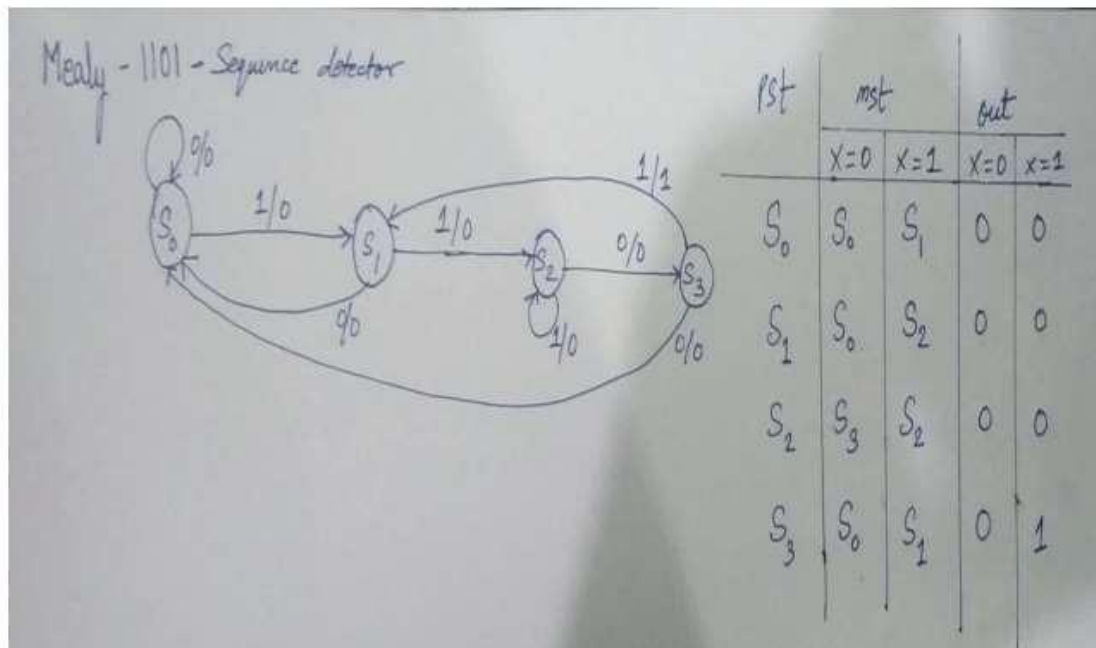 Mealy - 1101 - Sequence detector
0/0
1/0
1/0
0/0
1/1
S0
S1
S2
S3
0/0
1/0
0/0
Pst nst out
X=0 X=1 X=0 X=1
S0 S0 S1 0 0
S1 S0 S2 0 0
S2 S3 S2 0 0
S3 S0 S1 0 1